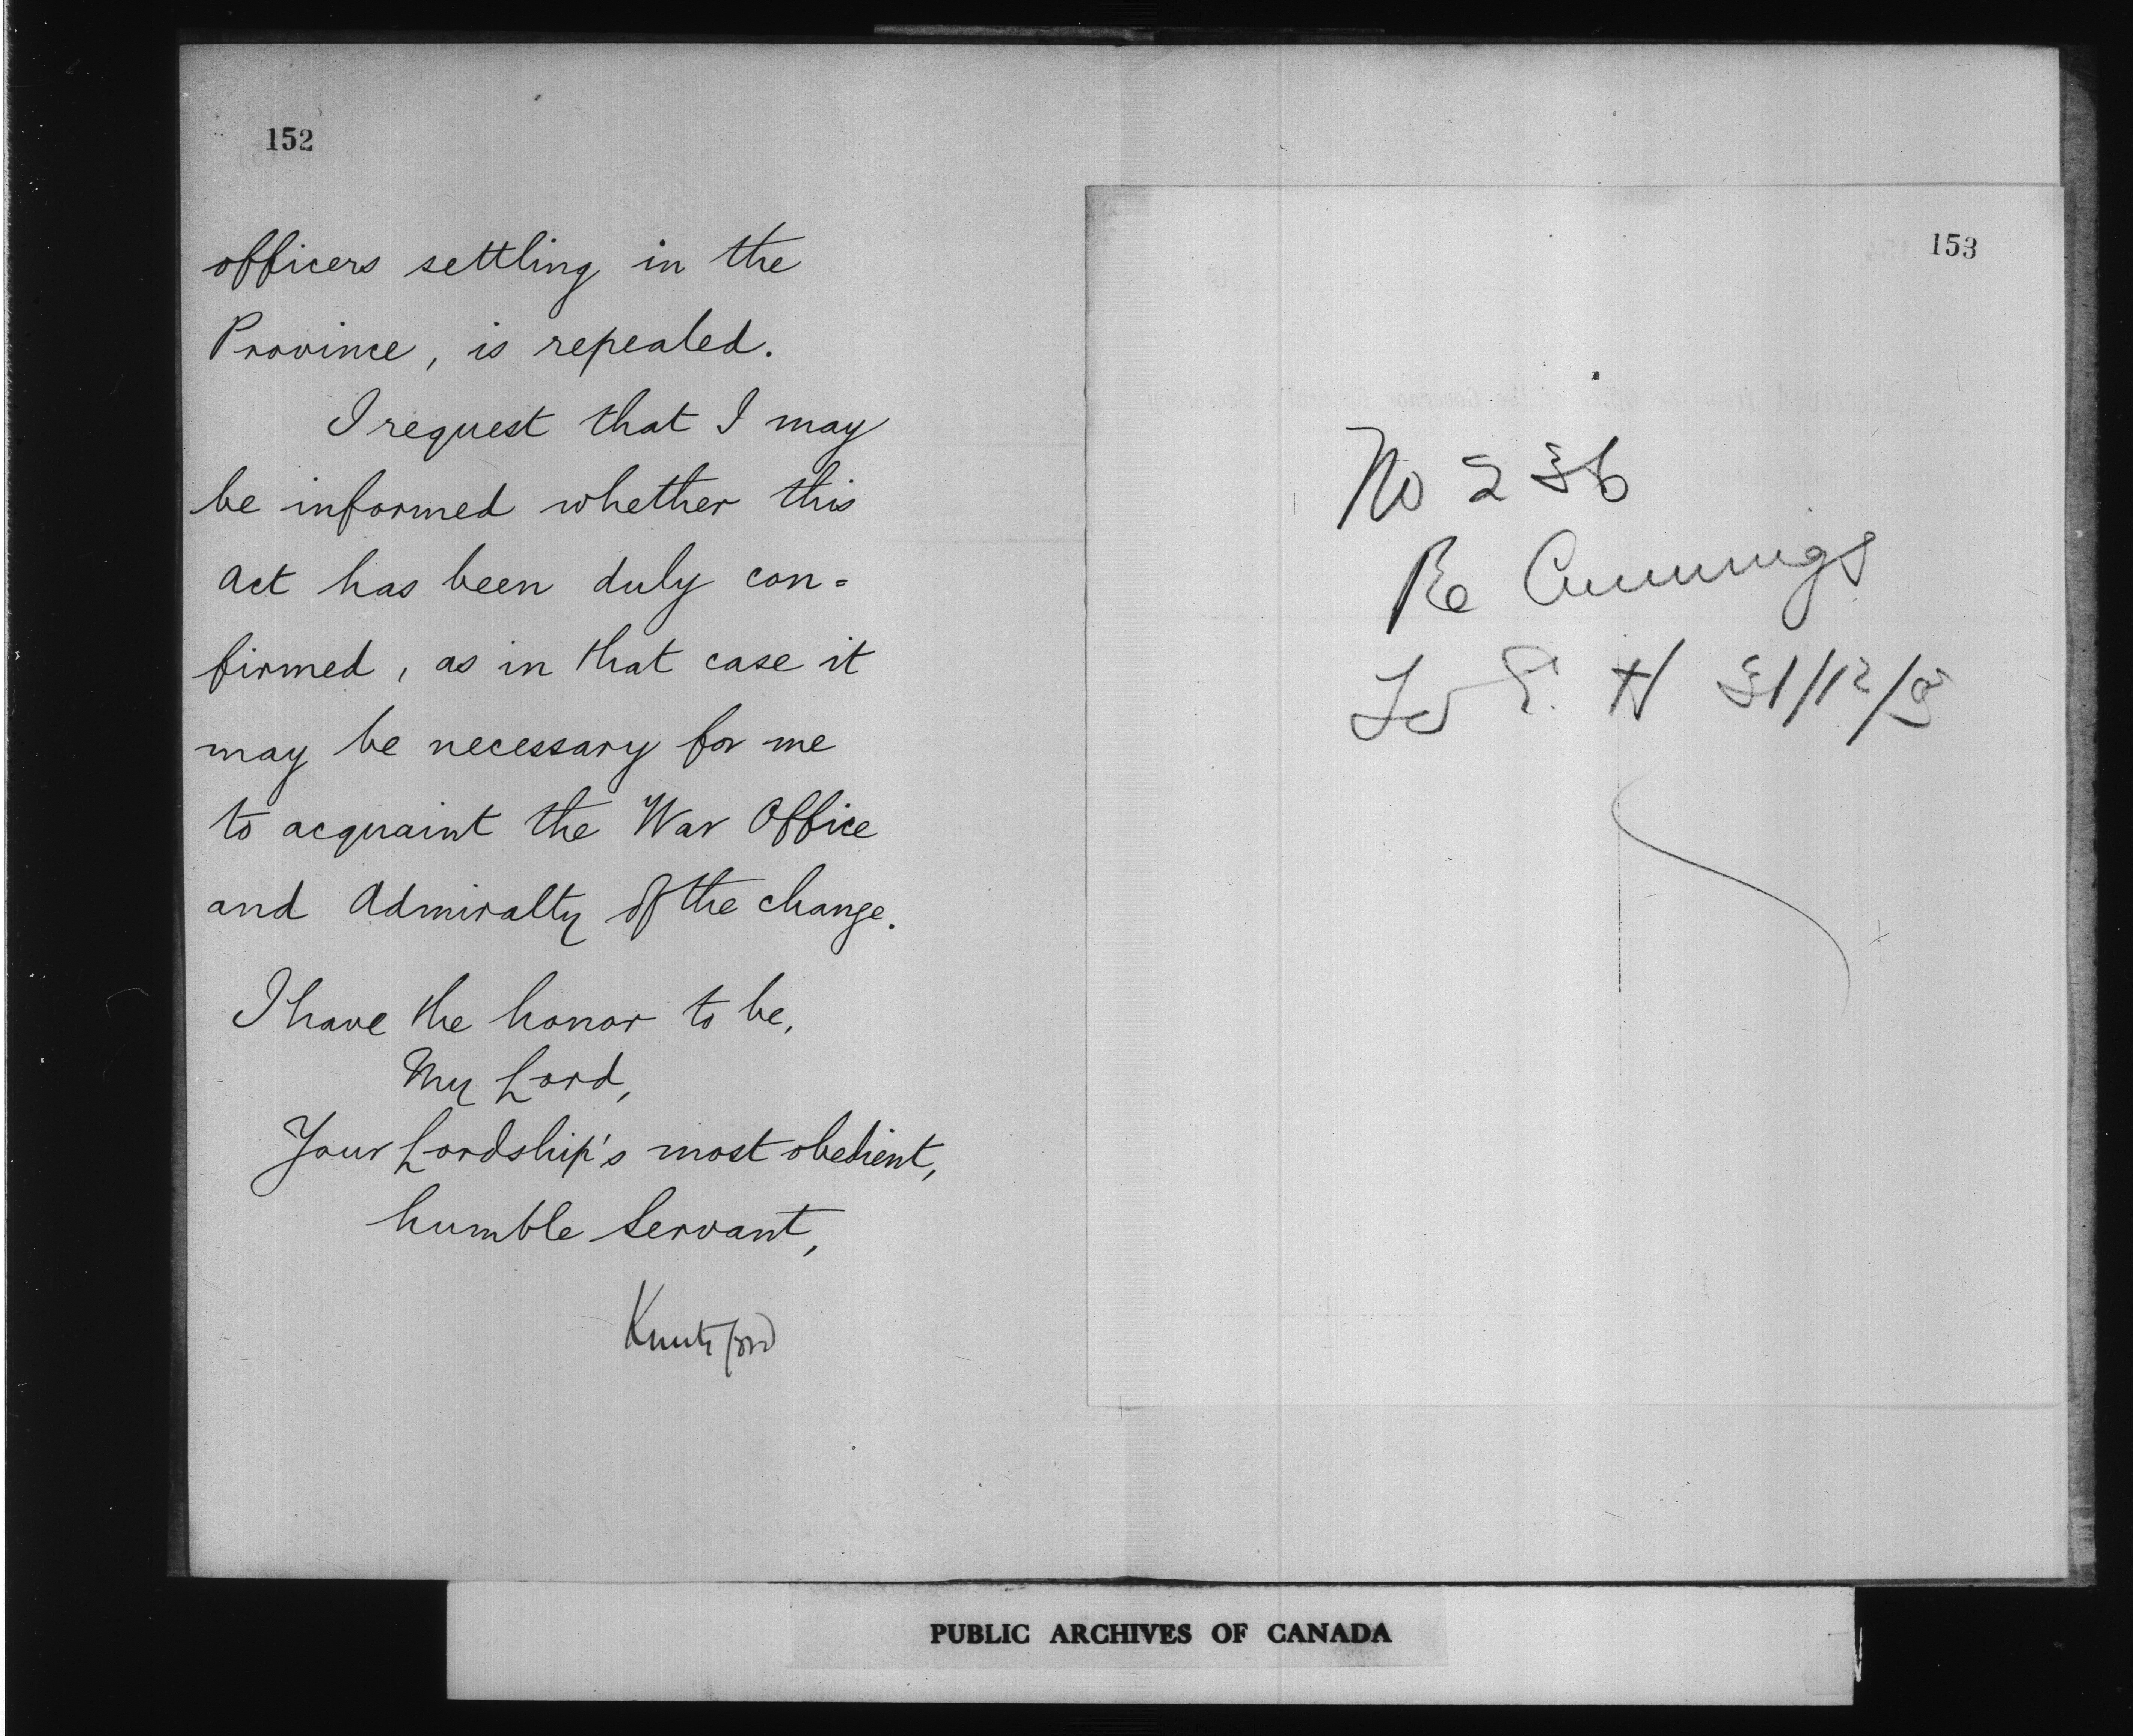 152
officers settling in the
Province, is repealed.
I request that I may
be informed whether this
Act has been duly con=
firmed, as in that case it
may be necessary for me
to acquaint the War Office
and Admiralty of the change.
I have the honor to be,
My Lord,
Your Lordship's most obedient,
humble Servant,
Knutsford
153
No 236
Re Cummings
31/12/
PUBLIC ARCHIVES OF CANADA